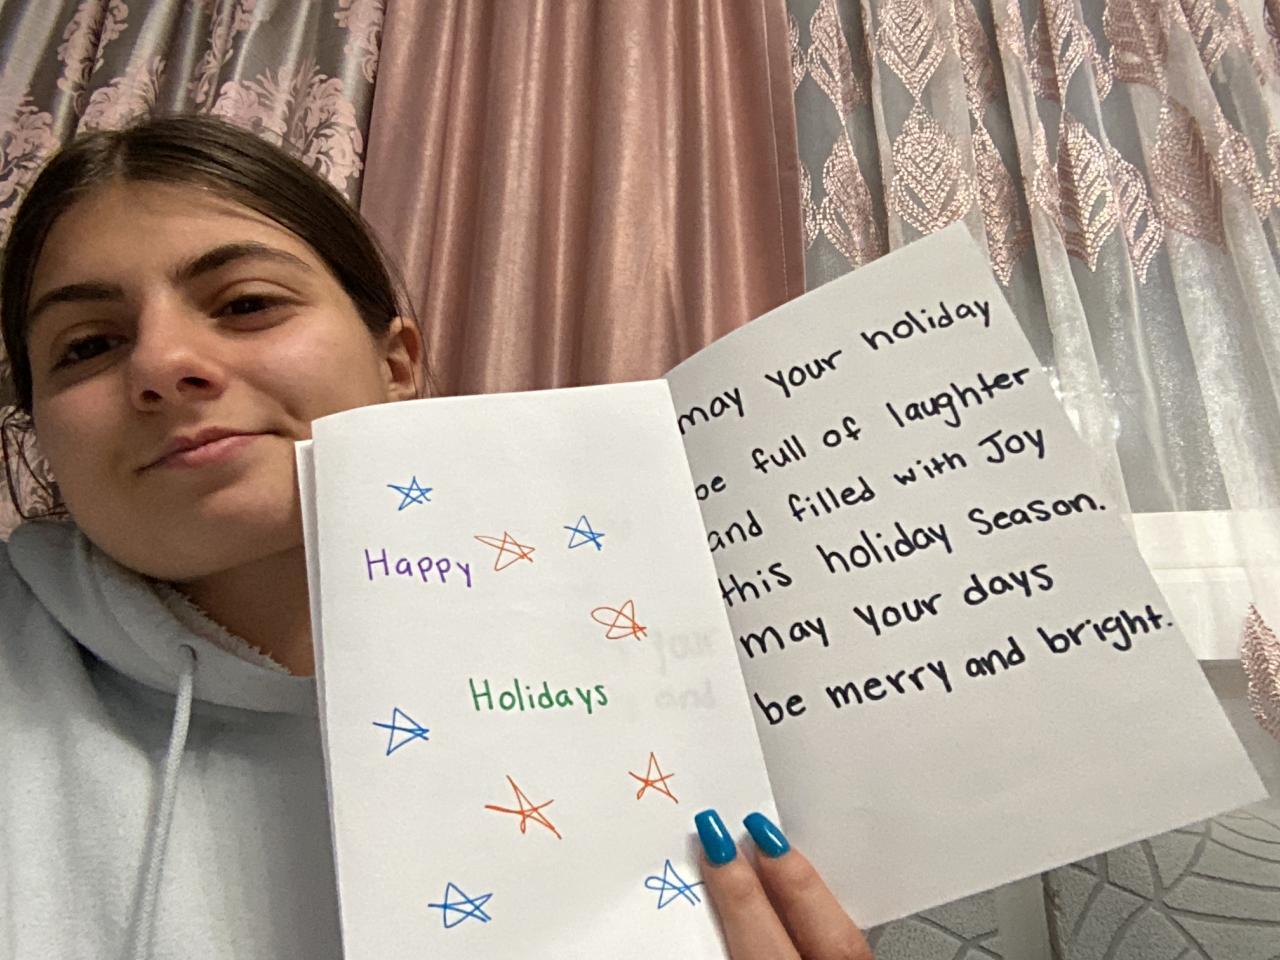 Happy
Holidays
may your holiday
be full of laughter
and filled with Joy
this holiday Season.
may your days
be merry and bright.